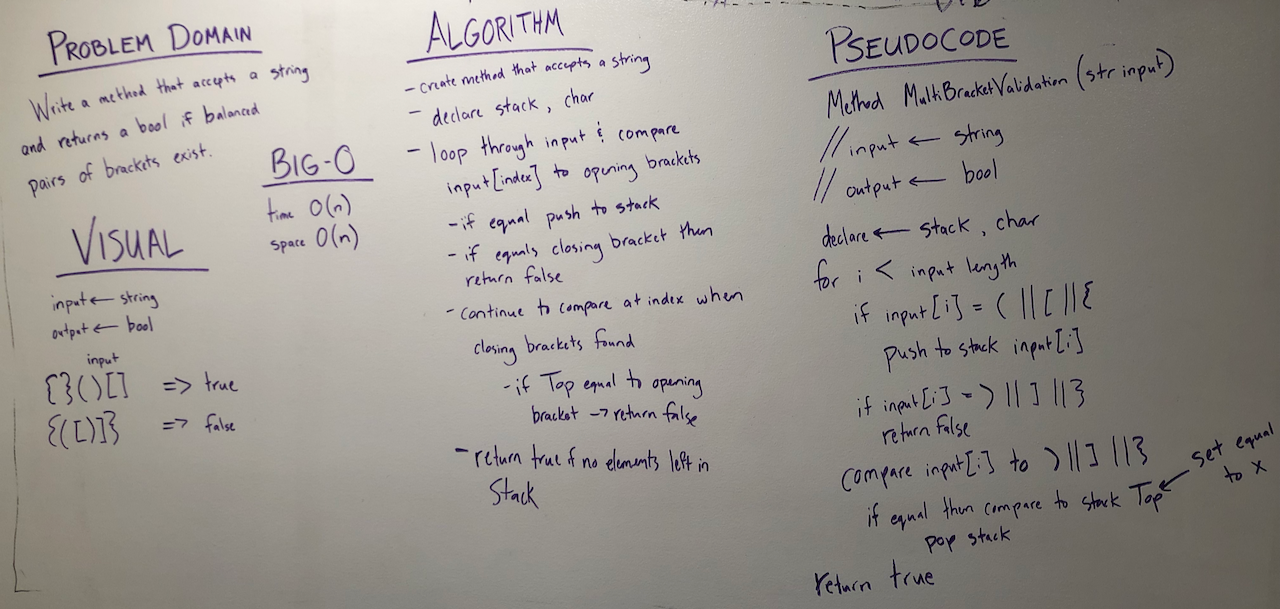 PROBLEM DOMAIN
Write a method that accepts a string
and returns a bool if balanced
pairs of brackets exist.
BIG-O
time O(n)
space O(n)
VISUAL
input ← string
output ← bool
input
{}()[] => true
{([)]} => false
ALGORITHM
- create method that accepts a string
- declare stack, char
- loop through input & compare
input[index] to opening brackets
- if equal push to stack
- if equals closing bracket then
return false
- continue to compare at index when
closing brackets found
- if Top equal to opening
bracket → return false
- return true if no elements left in
Stack
PSEUDOCODE
Method MultiBracketValidation (str input)
// input ← string
// output ← bool
declare ← stack, char
for i < input length
if input[i] = ( || [ || {
push to stack input[i]
if input[i] = ) || ] || }
return false
compare input[i] to ) || ] || }
if equal then compare to stack Top ← set equal
to x
pop stack
return true